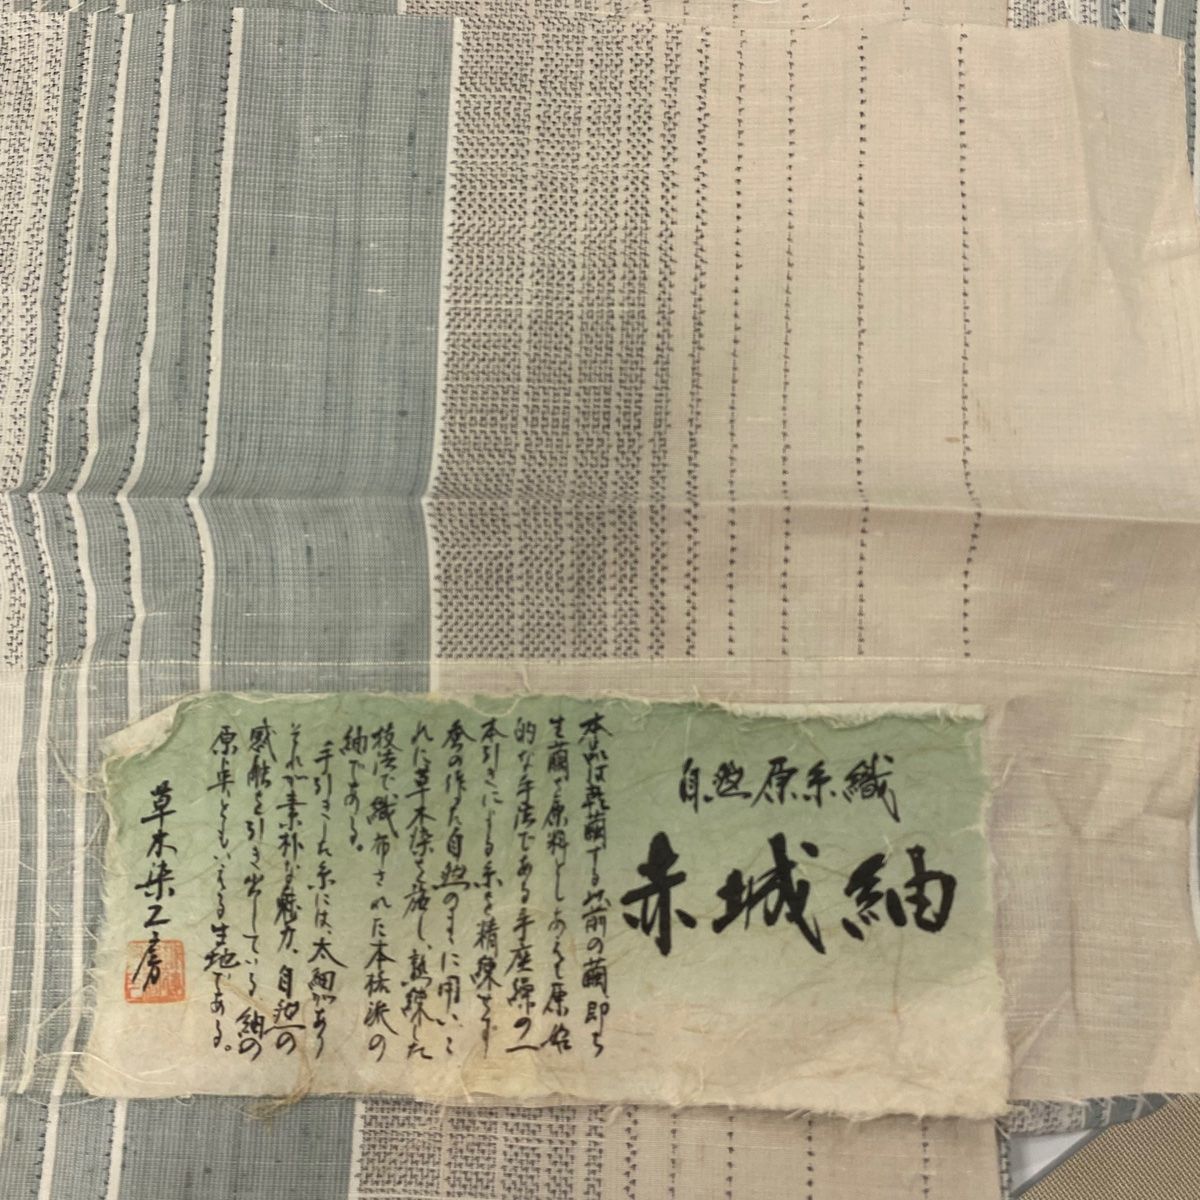 自然原糸織
赤城紬
本品は乾繭する以前の繭即ち
生繭を原料としあくも原始
的な手法である手座繰の一
本引きによる糸を精練せず
蚕の作った自然のままに用いこ
れに草木染を施し、熟練した
技法で、織布された本格派の
紬である。
手引きした糸には、太細があり
それが素朴な魅力、自然の
感触を引き出している。紬の
原点ともいえる生地である。
草木染工房